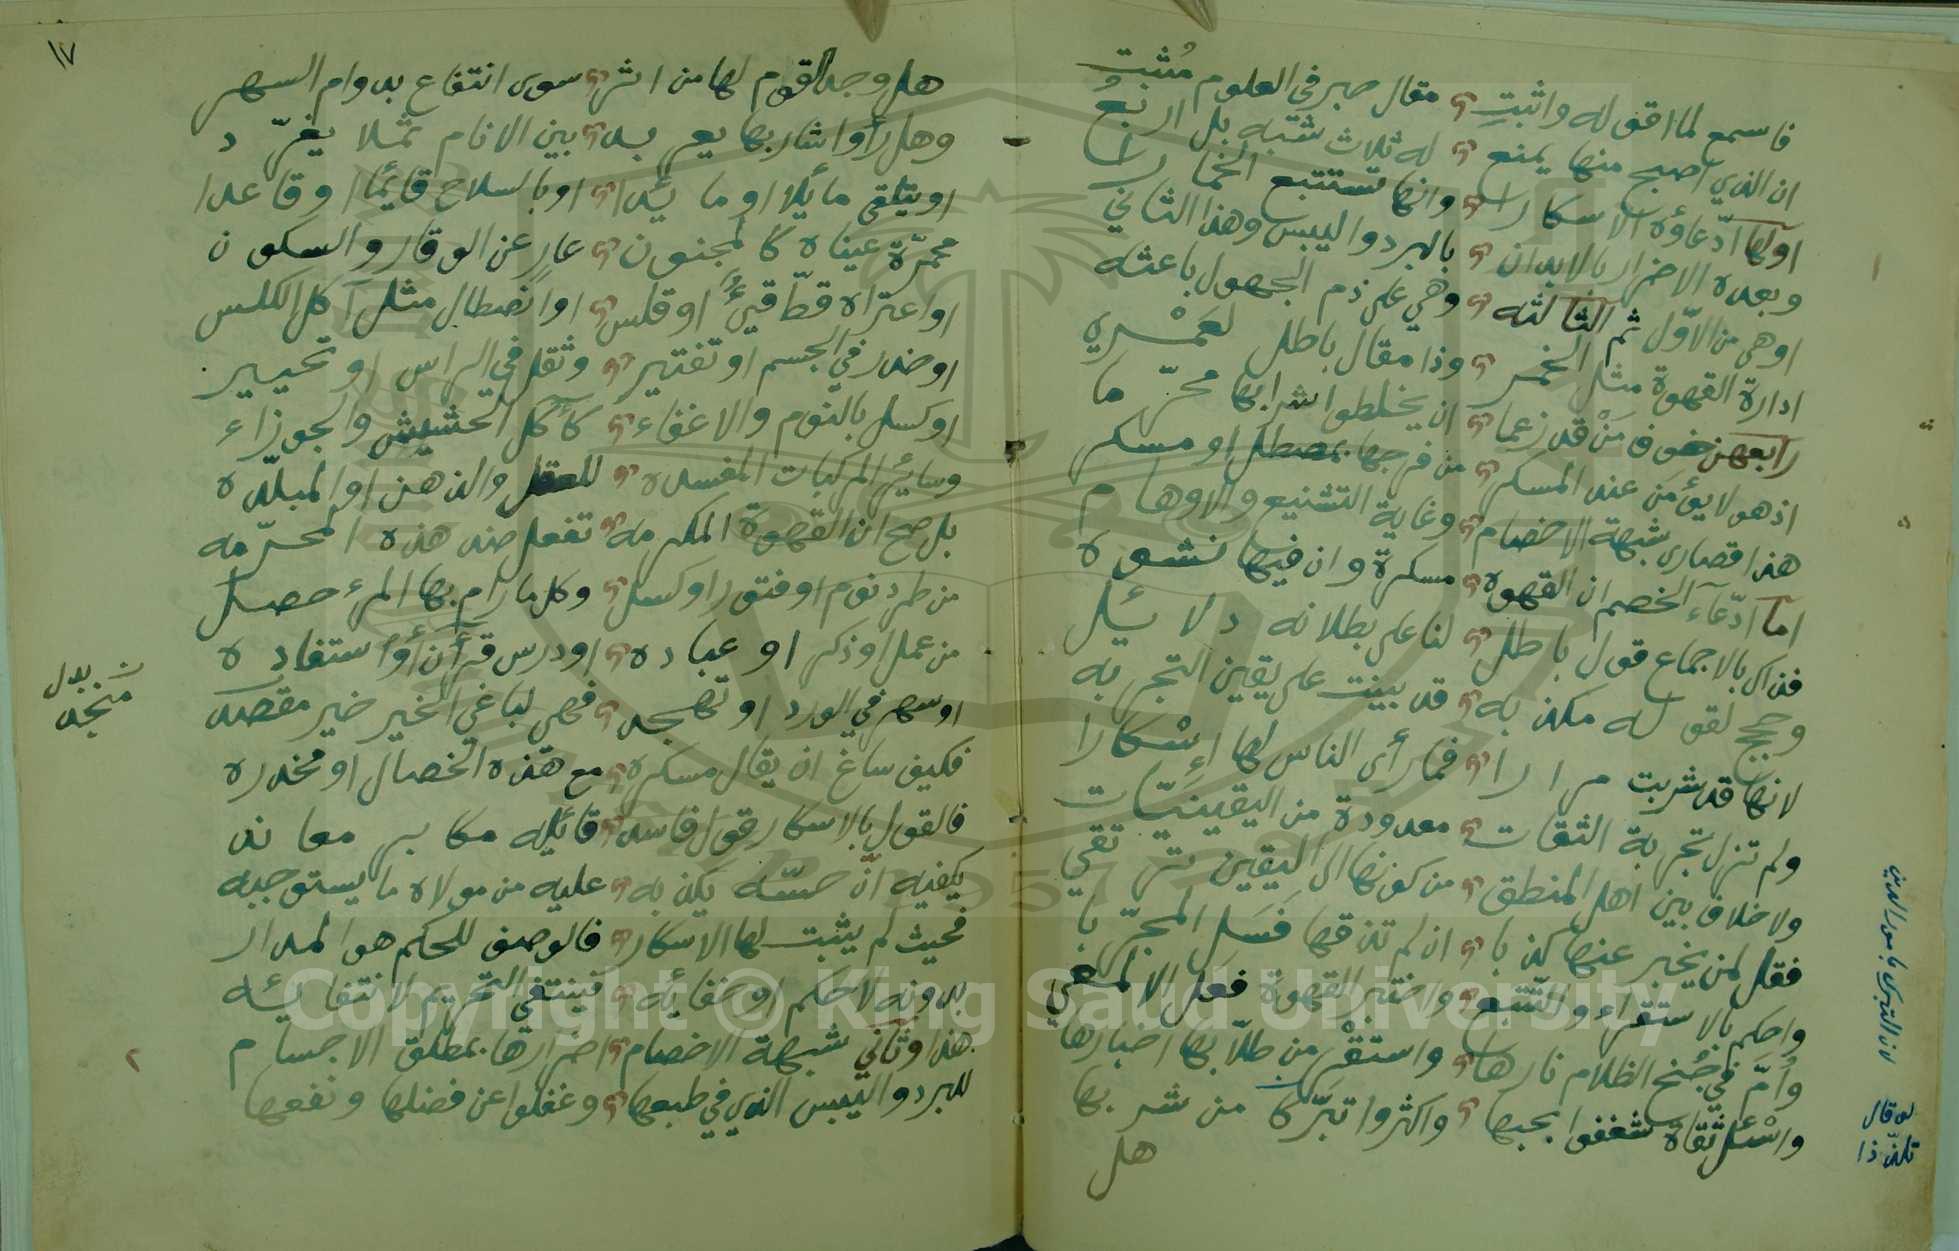 فاسمع لما اقوله واثبتِ مقال حبر في العلوم مُثبتِ
ان الذي اصبح منها يمنع له ثلاث شبه بل اربعُ
اولها ادّعاؤه الاسكارا وانها تستتبع الخمارا
وبعده الاضرار بالابدان بالبرد واليبس وهذا الثاني
اوهي من الاوّل ثم الثالثه وهي على ذم الجهول باعثه
ادارة القهوة مثل الخمر وذا مقال باطل لعَمْري
رابعهن خوف مَنْ قد زعما ان يخلطوا شرابها محرّما
اذ هو لا يؤمن عند المسكر من مزجها بمصطل او مسكر
هذا قصارى شبهة الاخصام وغاية التشنيع والاوهام
اما ادّعاء الخصم ان القهوه مسكرة وان فيها نشوه
فذاك بالاجماع قول باطل لنا على بطلانه دلائل
وحجج لقوله مكذبه قد بينت على يقين التجربه
لانها قد شربت مرارا فما رأى الناس لها إسْكارا
ولم تزل تجربة الثقات معدودة من اليقينيّات
ولا خلاف بين اهل المنطق من كونها الى اليقين ترتقي
فقل لمن يخبر عنها كذبا ان لم تذقها فَسَل المجرّبا
واحكم بالاستقراء والتّتبع واختبر القهوة فعل الالمعي
وأُمَّ في جُنح الظلام نارها واستقْر من طلّابها اخبارها
واسْئل ثقاة شغفوا بحبها واكثروا تبرّكا من شربها
هل
لان التبرك بامور الدين
لو قال
تلذّذا
١٧
هل وجد القوم لها من اثر سوى انتفاع بدوام السهر
وهل رأوا شاربها يعربد بين الانام ثملا يغرّد
او يتلقى مائلا او مائدا او بالسلاح قائمًا او قاعدا
محمرّة عيناه كالمجنون عارٍ عن الوقار والسكون
او اعتراه قطّ قيءٌ او قلس او انصطال مثل آكل الكلس
او خدر في الجسم او تفتير وثقل في الراس او تحيير
او كسل بالنوم والاغفاء كآكل الحشيش والجوزاء
وسائر المركبات المفسده للعقل والذهن او المبلّده
بل صح ان القهوة المكرمه تفعل ضد هذه المحرّمه
من طرد نوم او فتور او كسل وكل ما رام بها المرء حصل
من عمل او ذكر او عباده او درس قرآن أو استفاده
او سهر في الورد او تهجد فهي لباغي الخير خير مقصد
بدل
منجد
فكيف ساغ ان يقال مسكره مع هذه الخصال او مخدره
فالقول بالاسكار قول فاسد قائله مكابر معاند
يكفيه انّ حسّه يكذبه عليه من مولاه ما يستوجبه
فحيث لم يثبت لها الاسكار فالوصف للحكم هو المدار
بدونه لا حكم او خفائه فينتفي التحريم لانتفائه
هذا وثاني شبهة الاخصام اضرارها بمطلق الاجسام
للبرد واليبس الذي في طبعها وغفلوا عن فضلها ونفعها
Copyright © King Saud University
1957